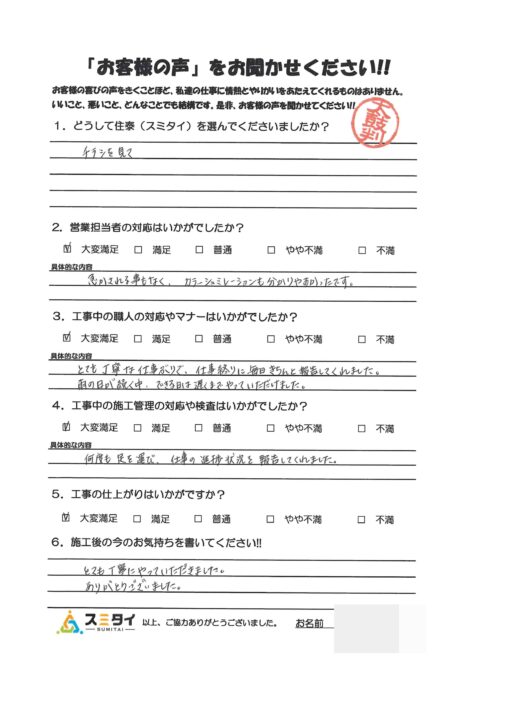 「お客様の声」をお聞かせください!!
お客様の喜びの声をきくことほど、私達の仕事に情熱とやりがいをあたえてくれるものはありません。
いいこと、悪いこと、どんなことでも結構です。是非、お客様の声を聞かせてください!!
太鼓判
1．どうして住泰（スミタイ）を選んでくださいましたか？
チラシを見て
2．営業担当者の対応はいかがでしたか？
☑ 大変満足 □ 満足 □ 普通 □ やや不満 □ 不満
具体的な内容
急かされる事もなく、カラーシュミレーションも分かりやすかったです。
3．工事中の職人の対応やマナーはいかがでしたか？
☑ 大変満足 □ 満足 □ 普通 □ やや不満 □ 不満
具体的な内容
とても丁寧な仕事ぶりで、仕事終りに毎日きちんと報告してくれました。
雨の日が続く中、できる日は遅くまでやっていただけました。
4．工事中の施工管理の対応や検査はいかがでしたか？
☑ 大変満足 □ 満足 □ 普通 □ やや不満 □ 不満
具体的な内容
何度も足を運び、仕事の進捗状況を報告してくれました。
5．工事の仕上がりはいかがですか？
☑ 大変満足 □ 満足 □ 普通 □ やや不満 □ 不満
6．施工後の今のお気持ちを書いてください!!
とても丁寧にやっていただきました。
ありがとうございました。
スミタイ SUMITAI 以上、ご協力ありがとうございました。 お名前